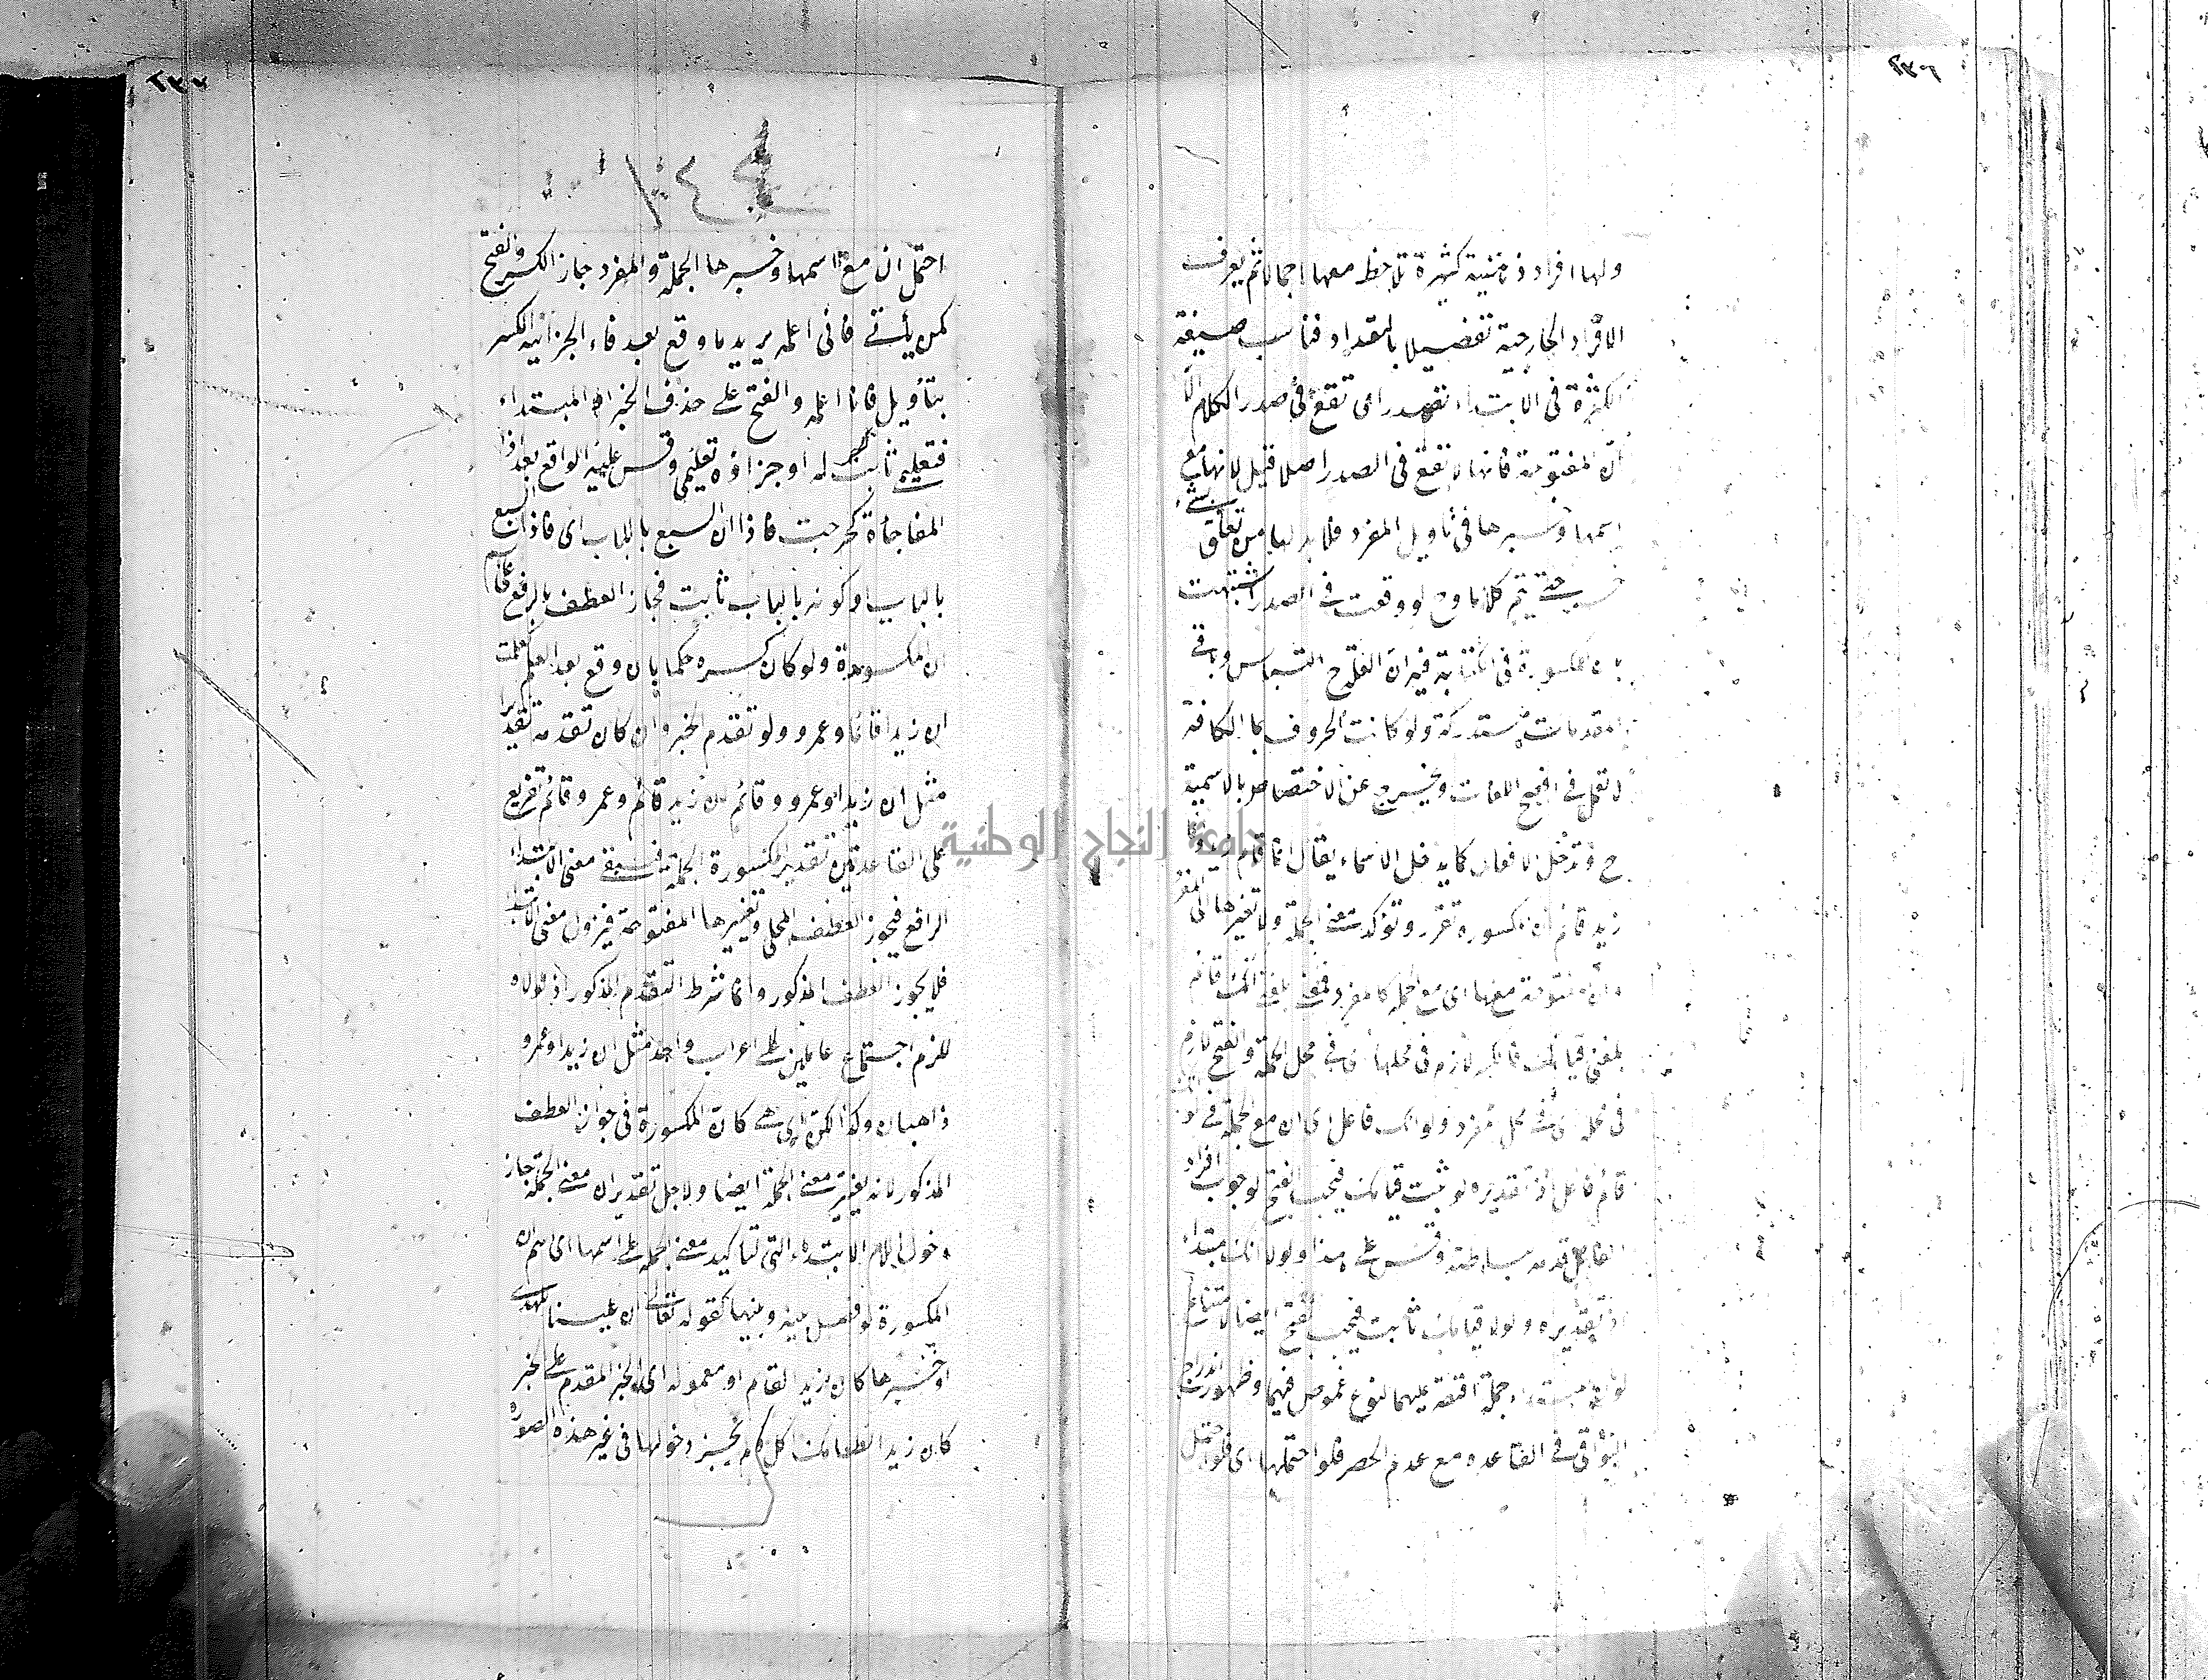 ٢٣٦
ولها افراد ذهنية كثيرة تلاحظ معها اجمالا ثم يعرف
الافراد الخارجية تفضيلا بالمقداد فناسب صيغة
الكثرة فى الابتداء تصدر اى تقع فى صدر الكلام الا
انّ المفتوحة فانها لا تقع فى الصدر اصلا قيل لانها مع
اسمها وخبرها فى تأويل المفرد فلا بد لها من تعلق بشئ
حتى يتم كلاما وح لو وقعت فى الصدر اشتبهت
المكسورة فى الكتابة فيه ان الفتح التباس وباقى
المقدمات مستدركة ولو كانت الحروف بما الكافة
لا تعمل فى افصح اللغات ويخرج عن الاختصاص بالاسمية
ح وتدخل الافعال كما يدخل الاسماء يقال انما قام زيد وانما
زيد قائم ان المكسورة تقرر وتؤكد معنى الجملة ولا تغيرها الى المفرد
وان المفتوحة معها اى مع الجملة كالمفرد فمعنى بلغنى انك قائم
بلغنى قيامك فالكسر لازم فى محلها اى فى محل الجملة والفتح لازم
فى محله اى فى محل مفرد ولو انك فاعل اى ان مع الجملة فى لو انك
قائم فاعل اذ تقديره لو ثبت قيامك فيجب الفتح لوجوب افراد
الفاعل قدمه بساطته وقس على هذا ولولا انك مبتداء
اذ تقديره ولولا قيامك ثابت فيجب الفتح ايضا لامتناع
كون المبتداء جملة اقتصر عليهما لنوع غموض فيهما وظهور اندراج
البواقى فى القاعدة مع عدم الحصر فلو احتملها اى فلو احتمل
٢٣٧
احتمل ان مع اسمها وخبرها الجملة والمفرد جاز الكسر والفتح
كمن يأتى فانى اعلمه يريد ما وقع بعد فاء الجزائية الكسر
بتأويل فانا اعلمه والفتح على حذف الخبر او المبتداء
فتعليمى ثابت له او جزاؤه تعليمى وقس عليه الواقع بعد اذا
المفاجأة كخرجت فاذا ان السبع بالباب اى فاذا السبع
بالباب او كونه بالباب ثابت فجاز العطف بالرفع على
ان المكسورة ولو كان كسره حكما بان وقع بعد العلم كعلمت
ان زيدا قائما وعمرو ولو تقدم الخبر وان كان تقدمه تقديرا
مثل ان زيدا وعمرو وقائم لان زيد قائم وعمرو قائم تفريع
على القاعدتين تقدير المكسورة الجملة فيبقى معنى الابتداء
الرافع فيجوز العطف المحلى وتغييرها المفتوحة فيزول معنى الابتداء
فلا يجوز العطف المذكور وانما شرط التقدم المذكور اذ لولاه
للزم اجتماع عاملين على اعراب واحد مثل ان زيدا وعمرو
ذاهبان وكذا لكن اى هى كان المكسورة فى جواز العطف
المذكور لانه لا يغير معنى الجملة ايضا ولاجل تقدير ان معنى الجملة جاز
دخول لام الابتداء التى لتأكيد معنى الجملة على اسمها اى اسم ان
المكسورة لو فصل بينه وبينها كقوله تعالى ان علينا للهدى
او خبرها كان زيدا لقائم او معموله اى الخبر المقدم على الخبر
كان زيدا لطعامك اكل ولم يجز دخولها فى غير هذه الصور
جامعة النجاح الوطنية